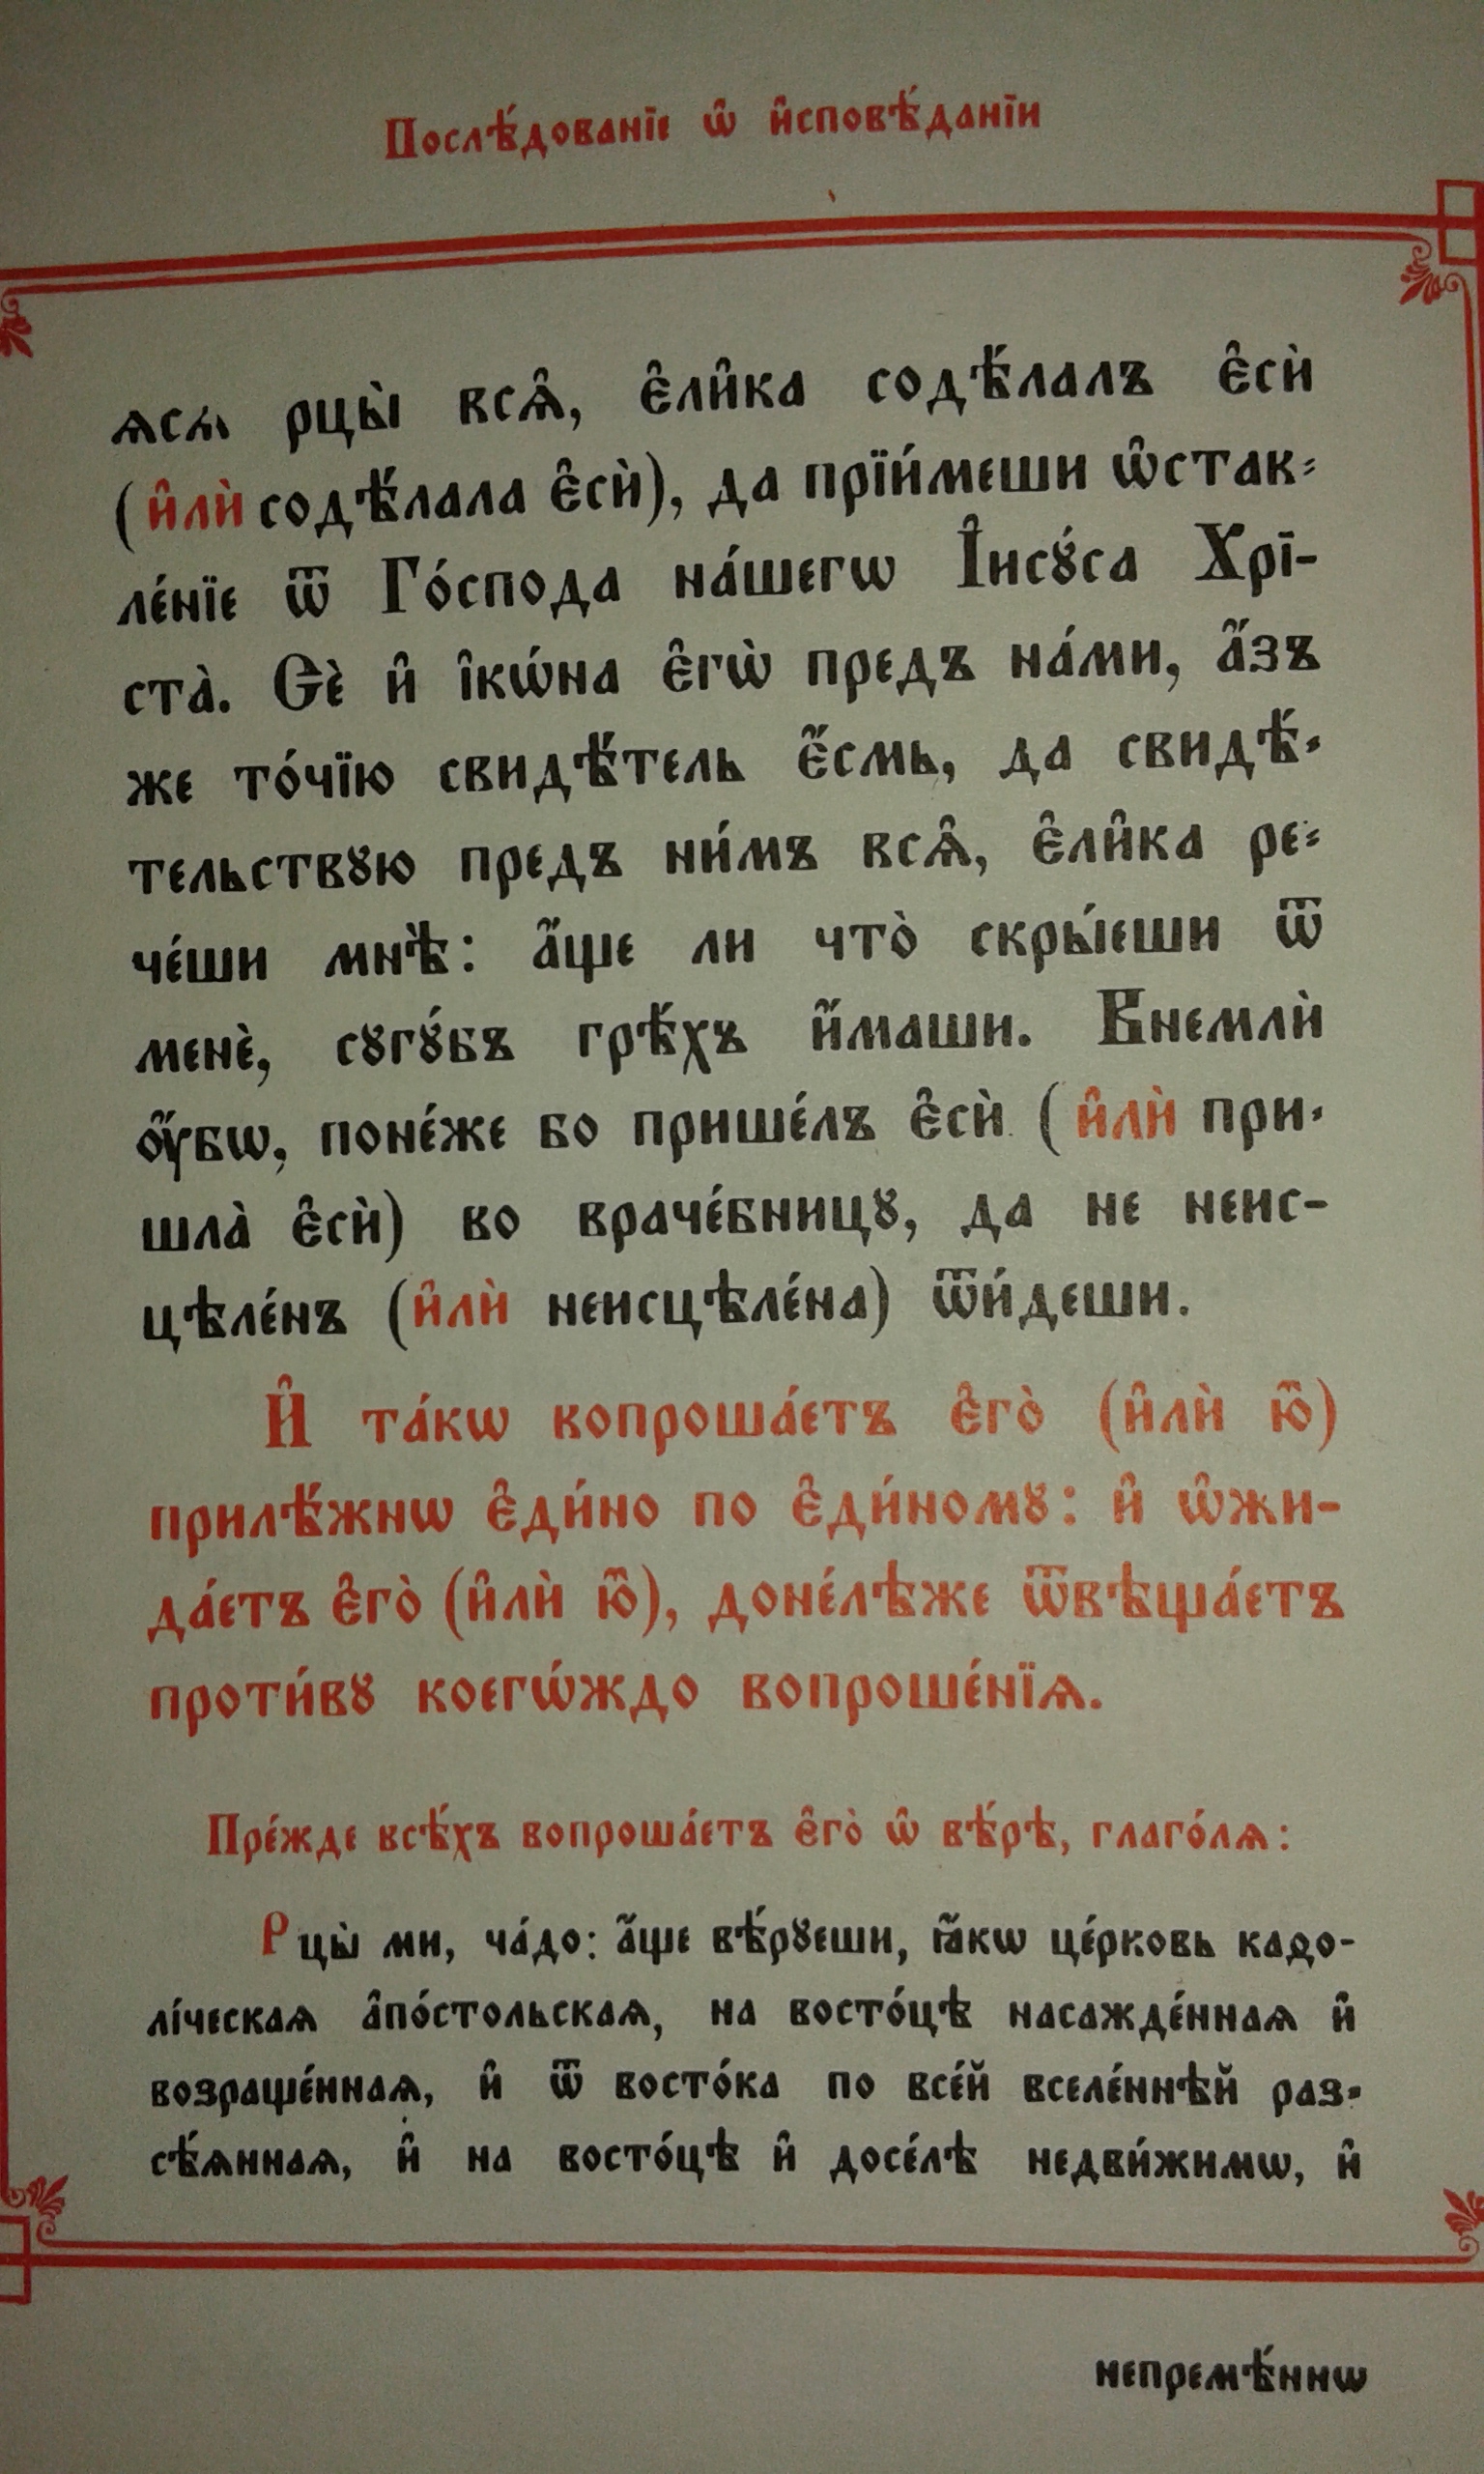 Послѣ́дованїе ѡ҆ и҆сповѣ́данїи
ѧсѧ рцы̀ всѧ̑, є҆ли̑ка содѣ́лалъ є҆сѝ
(и҆лѝ содѣ́лала є҆сѝ), да прїи́меши ѡ҆став-
ле́нїе ѿ Го́спода на́шегѡ І҆исꙋ́са Хрї-
ста̀. Сѐ и҆ і҆кѡ́на є҆гѡ̀ предъ на́ми, а҆́зъ
же то́чїю свидѣ́тель є҆́смь, да свидѣ́-
тельствꙋю предъ ни́мъ всѧ̑, є҆ли̑ка ре-
че́ши мнѣ̀: а҆́ще ли что̀ скры́еши ѿ
менѐ, сꙋгꙋ́бъ грѣ́хъ и҆́маши. Внемлѝ
ᲂу҆́бѡ, поне́же бо прише́лъ є҆сѝ (и҆лѝ при-
шла̀ є҆сѝ) во враче́бницꙋ, да не неис-
цѣле́нъ (и҆лѝ неисцѣле́на) ѿи́деши.
И҆ та́кѡ вопроша́етъ є҆го̀ (и҆лѝ ю҆̀)
прилѣ́жнѡ є҆ди́но по є҆ди́номꙋ: и҆ ѡ҆жи-
да́етъ є҆го̀ (и҆лѝ ю҆̀), доне́лѣже ѿвѣща́етъ
проти́вꙋ коегѡ́ждо вопроше́нїѧ.
Пре́жде всѣ́хъ вопроша́етъ є҆го̀ ѡ҆ вѣ́рѣ, глаго́лѧ:
Рцы̀ ми, ча́до: а҆́ще вѣ́рꙋеши, ꙗ҆́кѡ це́рковь каѳо-
лі́ческаѧ а҆по́стольскаѧ, на восто́цѣ насажде́ннаѧ и҆
возраще́ннаѧ, и҆ ѿ восто́ка по все́й вселе́ннѣй раз-
сѣ́ѧннаѧ, и҆ на восто́цѣ и҆ досе́лѣ недви́жимѡ, и҆
непремѣ́ннѡ